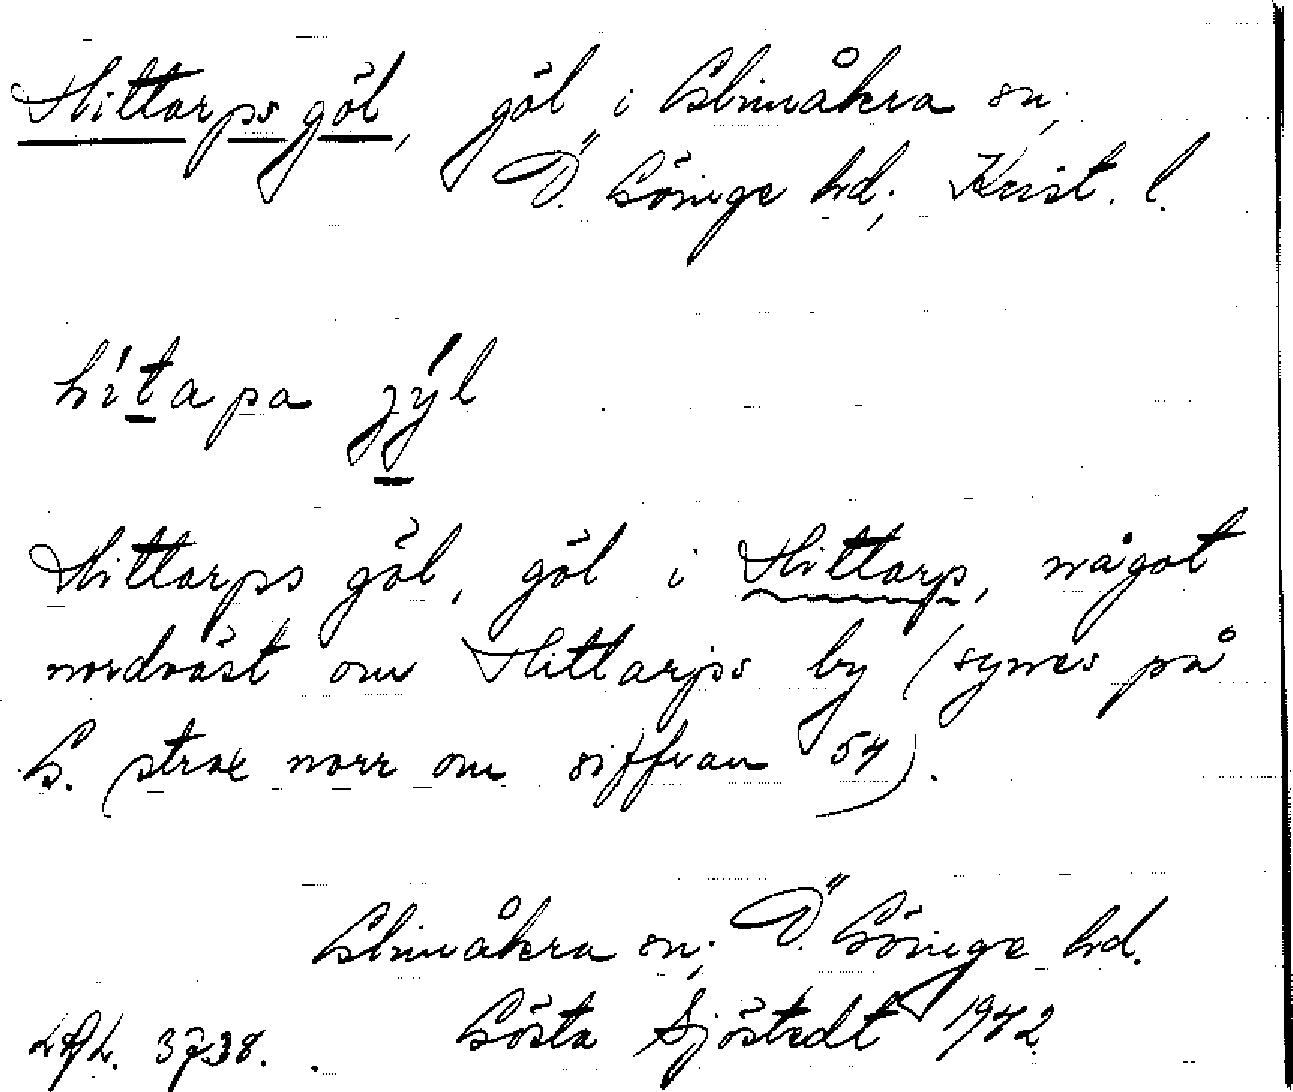 Hittarps göl, göl i Glimåkra sn;
Ö. Göinge hd; Krist. l.
hítapa jýl
Hittarps göl, göl i Hittarp, något
nordväst om Hittarps by (synes på
G. (strax norr om siffran 54).
Glimåkra sn; Ö. Göinge hd.
Gösta Sjöstedt 1942
3738.